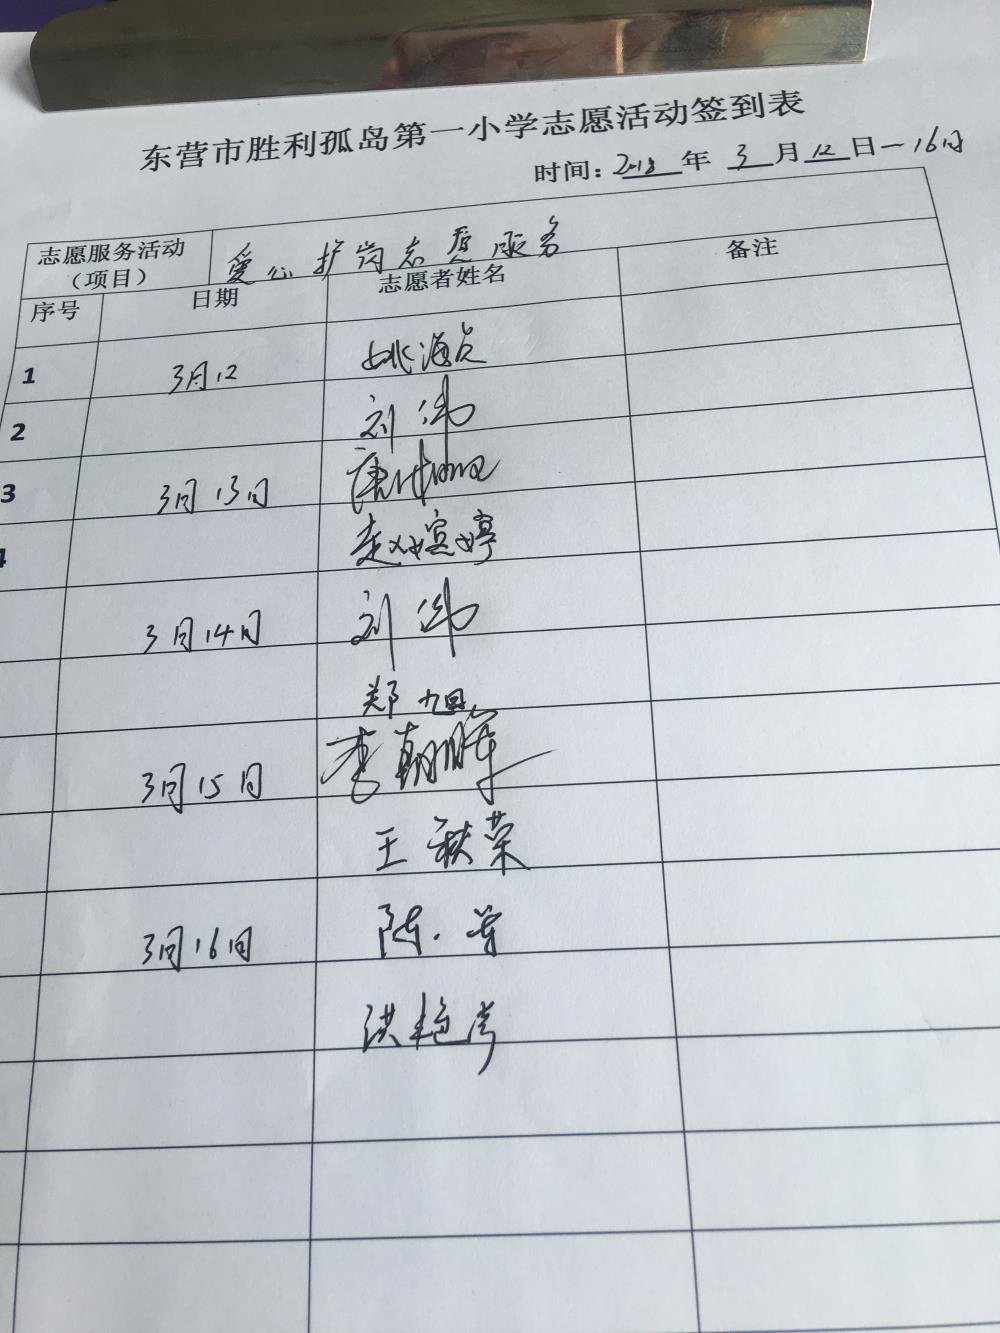 东营市胜利孤岛第一小学志愿活动签到表
时间：2018年 3月12日－16日
志愿服务活动（项目） 爱心护岗志愿服务
序号 日期 志愿者姓名 备注
1 3月12 姚海
2 刘伟
3 3月13日 唐
4 赵嫔婷
3月14日 刘伟
郑旭
3月15日 李朝晖
王秋荣
3月16日 陈
洪艳